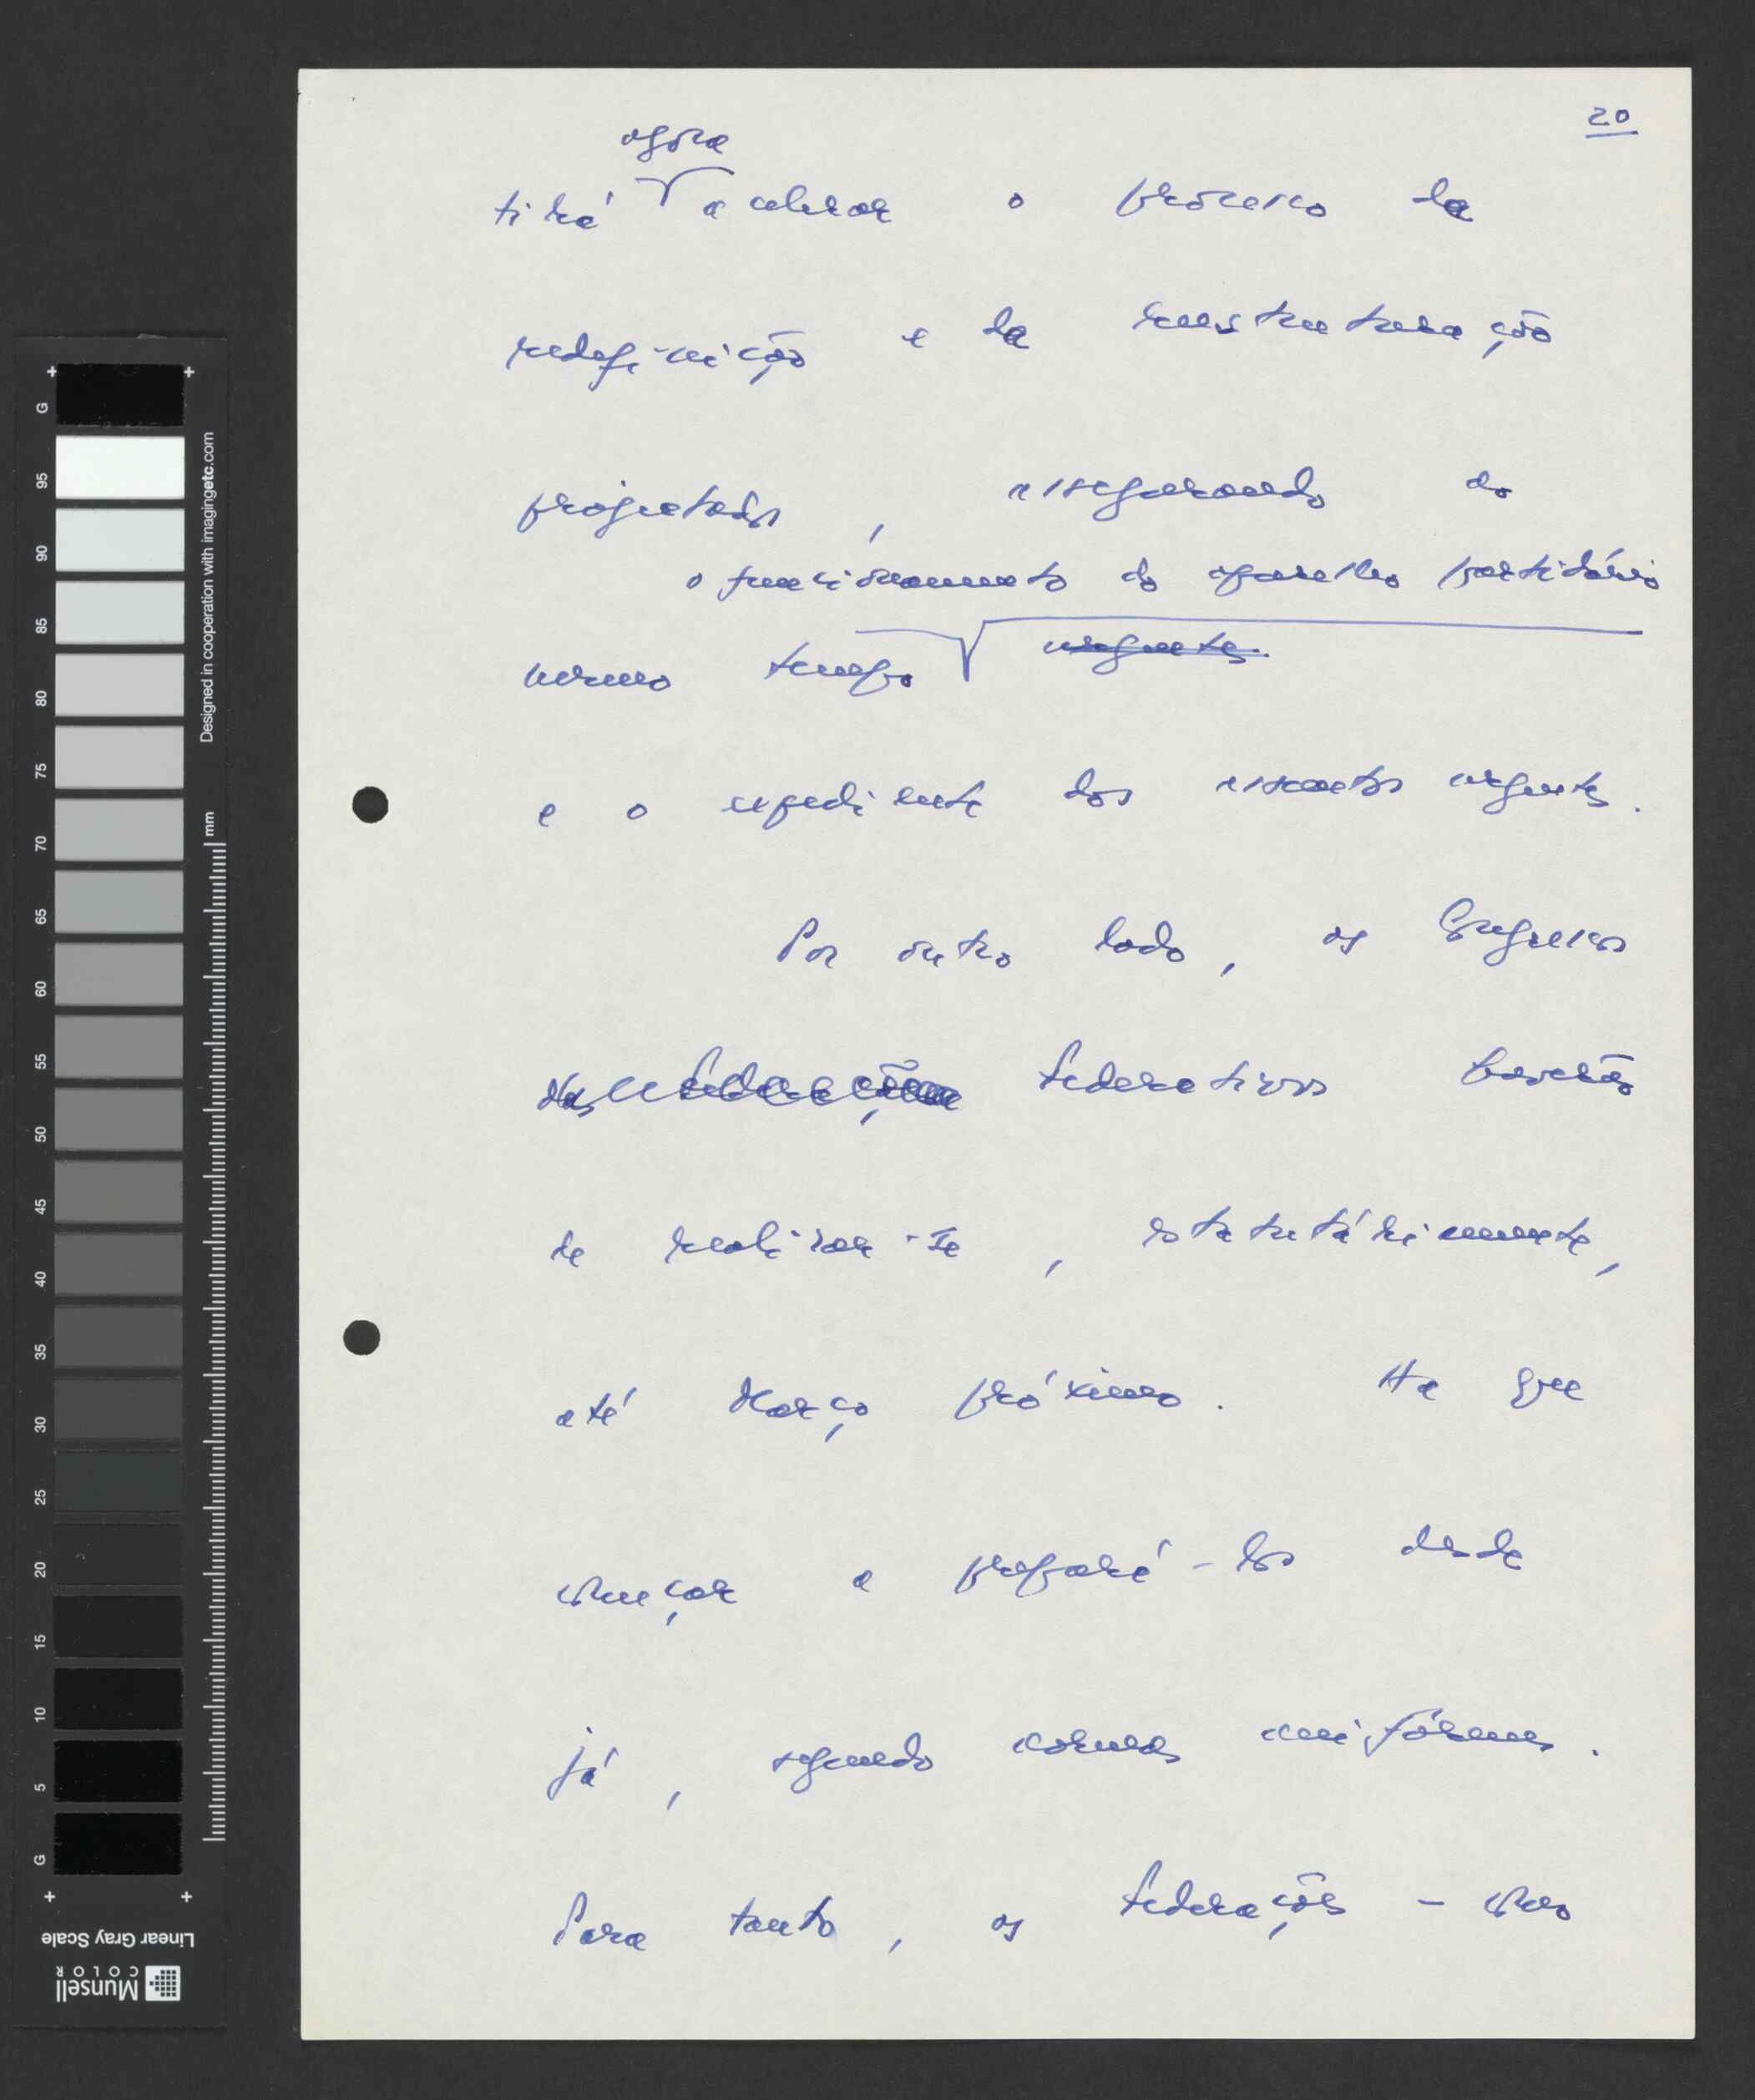 20
agora
tirá acelerar o processo da
redefinição e da reestruturação
projetadas, assegurando ao
o funcionamento do aparelho partidário
mesmo tempo urgentes.
e o expediente dos assuntos urgentes.
Por outro lado, os Congressos
das federações federativos haverão
de realizar-se, estatutáriamente,
até Março próximo. Ha que
começar a prepará-los desde
já, segundo normas uniformes.
Para tanto, as federações - como
G
95
90
85
80
75
70
65
60
55
50
45
40
35
30
25
20
15
10
5
G
Designed in cooperation with imagingetc.com
mm
Linear Gray Scale
Munsell
COLOR